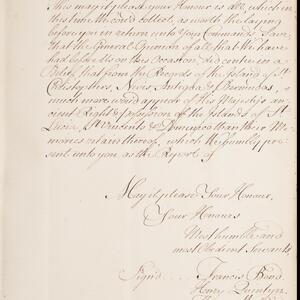 This may it please your Honour is all, which in
this time We could collect as worth the laying
before you in return unto your Commands; Save
that the General Opinion of all that We have
had before Us on this Occasion, did center in a
Belief, that from the Records of the Island of St
Christophers, Nevis, Antigua & Bermudas,
much more would appear of His Majestys an-
cient Right & possession of the Islands of St
Lucia, St Vincents & Dominico than their Me-
mories retain thereof, which We humbly pre-
sent unto you as the Report of
May it please Your Honour,
Your Honours
Most humble and
most Obedient Servants,
Sign'd . . . Francis Bond
Henry Quintyn